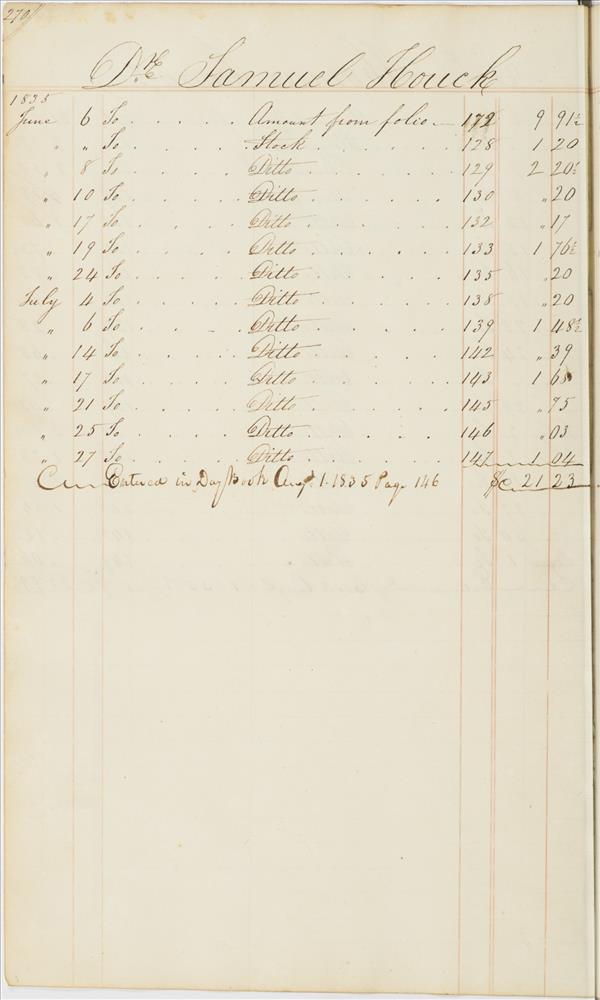 270
Dr. Samuel Houck
1835
June 6 To . . . . . Amount from folio 172 9 91½
" " To . . . . . Stock . . . . . . 128 1 20
" 8 To . . . . . Ditto . . . . . . 129 2 20½
" 10 To . . . . . Ditto . . . . . . 130 " 20
" 17 To . . . . . Ditto . . . . . . 132 " 17
" 19 To . . . . . Ditto . . . . . . 133 1 76½
" 24 To . . . . . Ditto . . . . . . 135 " 20
July 4 To . . . . . Ditto . . . . . . 138 " 20
" 6 To . . . . Ditto . . . . . 139 1 48½
" 14 To . . . . . Ditto . . . . . 142 " 39
" 17 To . . . . . Ditto . . . . . . 143 1 68
" 21 To . . . . . Ditto . . . . . . 145 " 75
" 25 To . . . . . Ditto . . . . . 146 " 03
" 27 To . . . . . Ditto . . . . . 147 1 04
Entered in Day Book Augt. 1. 1835 Page 146 21 23